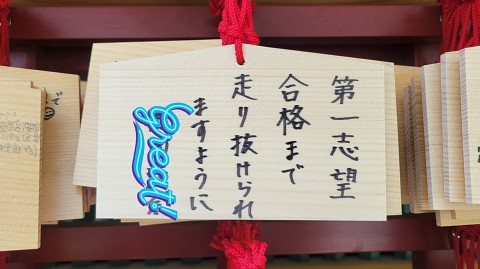 第一志望
合格まで
走り抜けられ
ますように
Great!